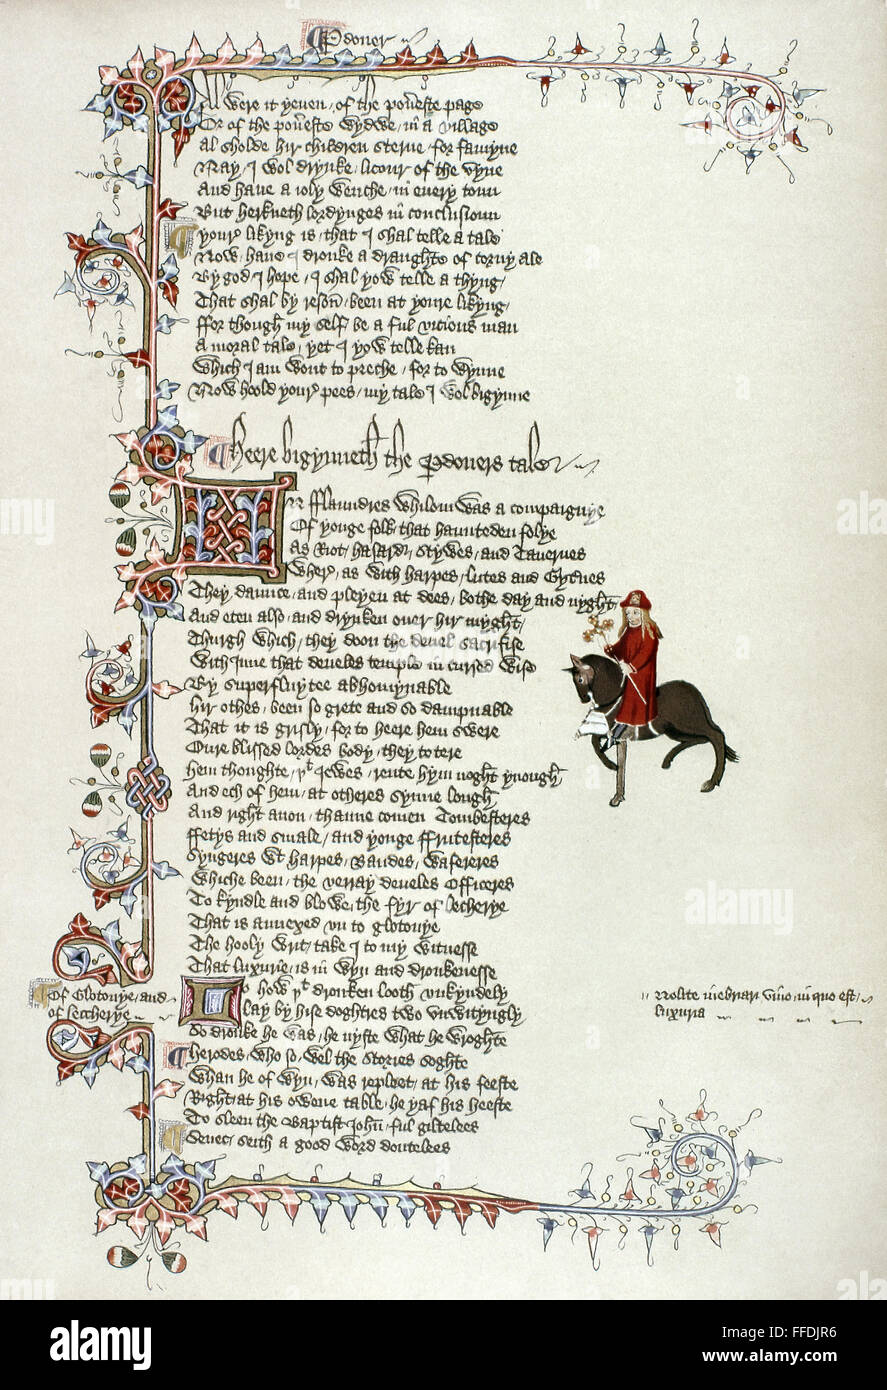 Pdoner
All were it yeuen, of the pou'este page
Or of the pou'este wydwe, in a village
Al sholde hir children sterue, for famyne
Nay, I wol drynke, licour of the vyne
And haue a ioly wenche, in euery toun
But herkneth lordynges in conclusioun
your' likyng is, that I shal telle a tale
Now, haue I dronke a draughte of corny ale
By god I hope, I shal yow telle a thyng,
That shal by reson, been at youre likyng,
ffor though my self, be a ful vicious man
A moral tale, yet I yow telle kan
Which I am wont to preche, for to wynne
Now hoold your' pees, my tale I wol bigynne
Heere bigynneth, the Pdoners tale
IN fflaundres whilom was a compaignye
Of yonge folk, that haunteden folye
As Riot, hasard, stywes, and Tauernes
Wher', as with harpes, lutes and Gyternes
They daunce, and pleyen at dees, bothe day and nyght,
And eten also, and drynken ouer hir myght,
Thurgh which, they doon the deuel sacrifise
With Inne that deueles temple in cursed wise
By superfluytee abhomynable
Hir othes, been so grete and so dampnable
That it is grisly, for to heere hem swere
Oure blissed lordes body, they to tere
Hem thoughte, yt Iewes, rente hym noght ynough
And ech of hem, at otheres synne lough
And right anon, thanne comen Tombesteres
ffetys and smale, and yonge ffrutesteres
Syngeres wt harpes, Baudes, wafereres
Whiche been, the verray deueles Officeres
To kyndle and blowe, the fyr of lecherye
That is annexed vn to glotonye
The hooly writ, take I to my witnesse
That luxurie, is in wyn and dronkenesse
Lo how yt dronken looth vnkyndely
Lay by hise doghtres two vnwityngly,
So dronke he was, he nyste what he wroghte
Herodes, who so, wel the stories soghte
Whan he of wyn, was repleet, at his feeste
Right at his owene table, he yaf his heeste
To sleen the Baptist Iohn, ful giltelees
Senec, seith a good word doutelees
Of Glotonye, and
of leccherye
Nolite inebriari vino, in quo est
luxuria
alamy
Image ID: FFDJR6
www.alamy.com